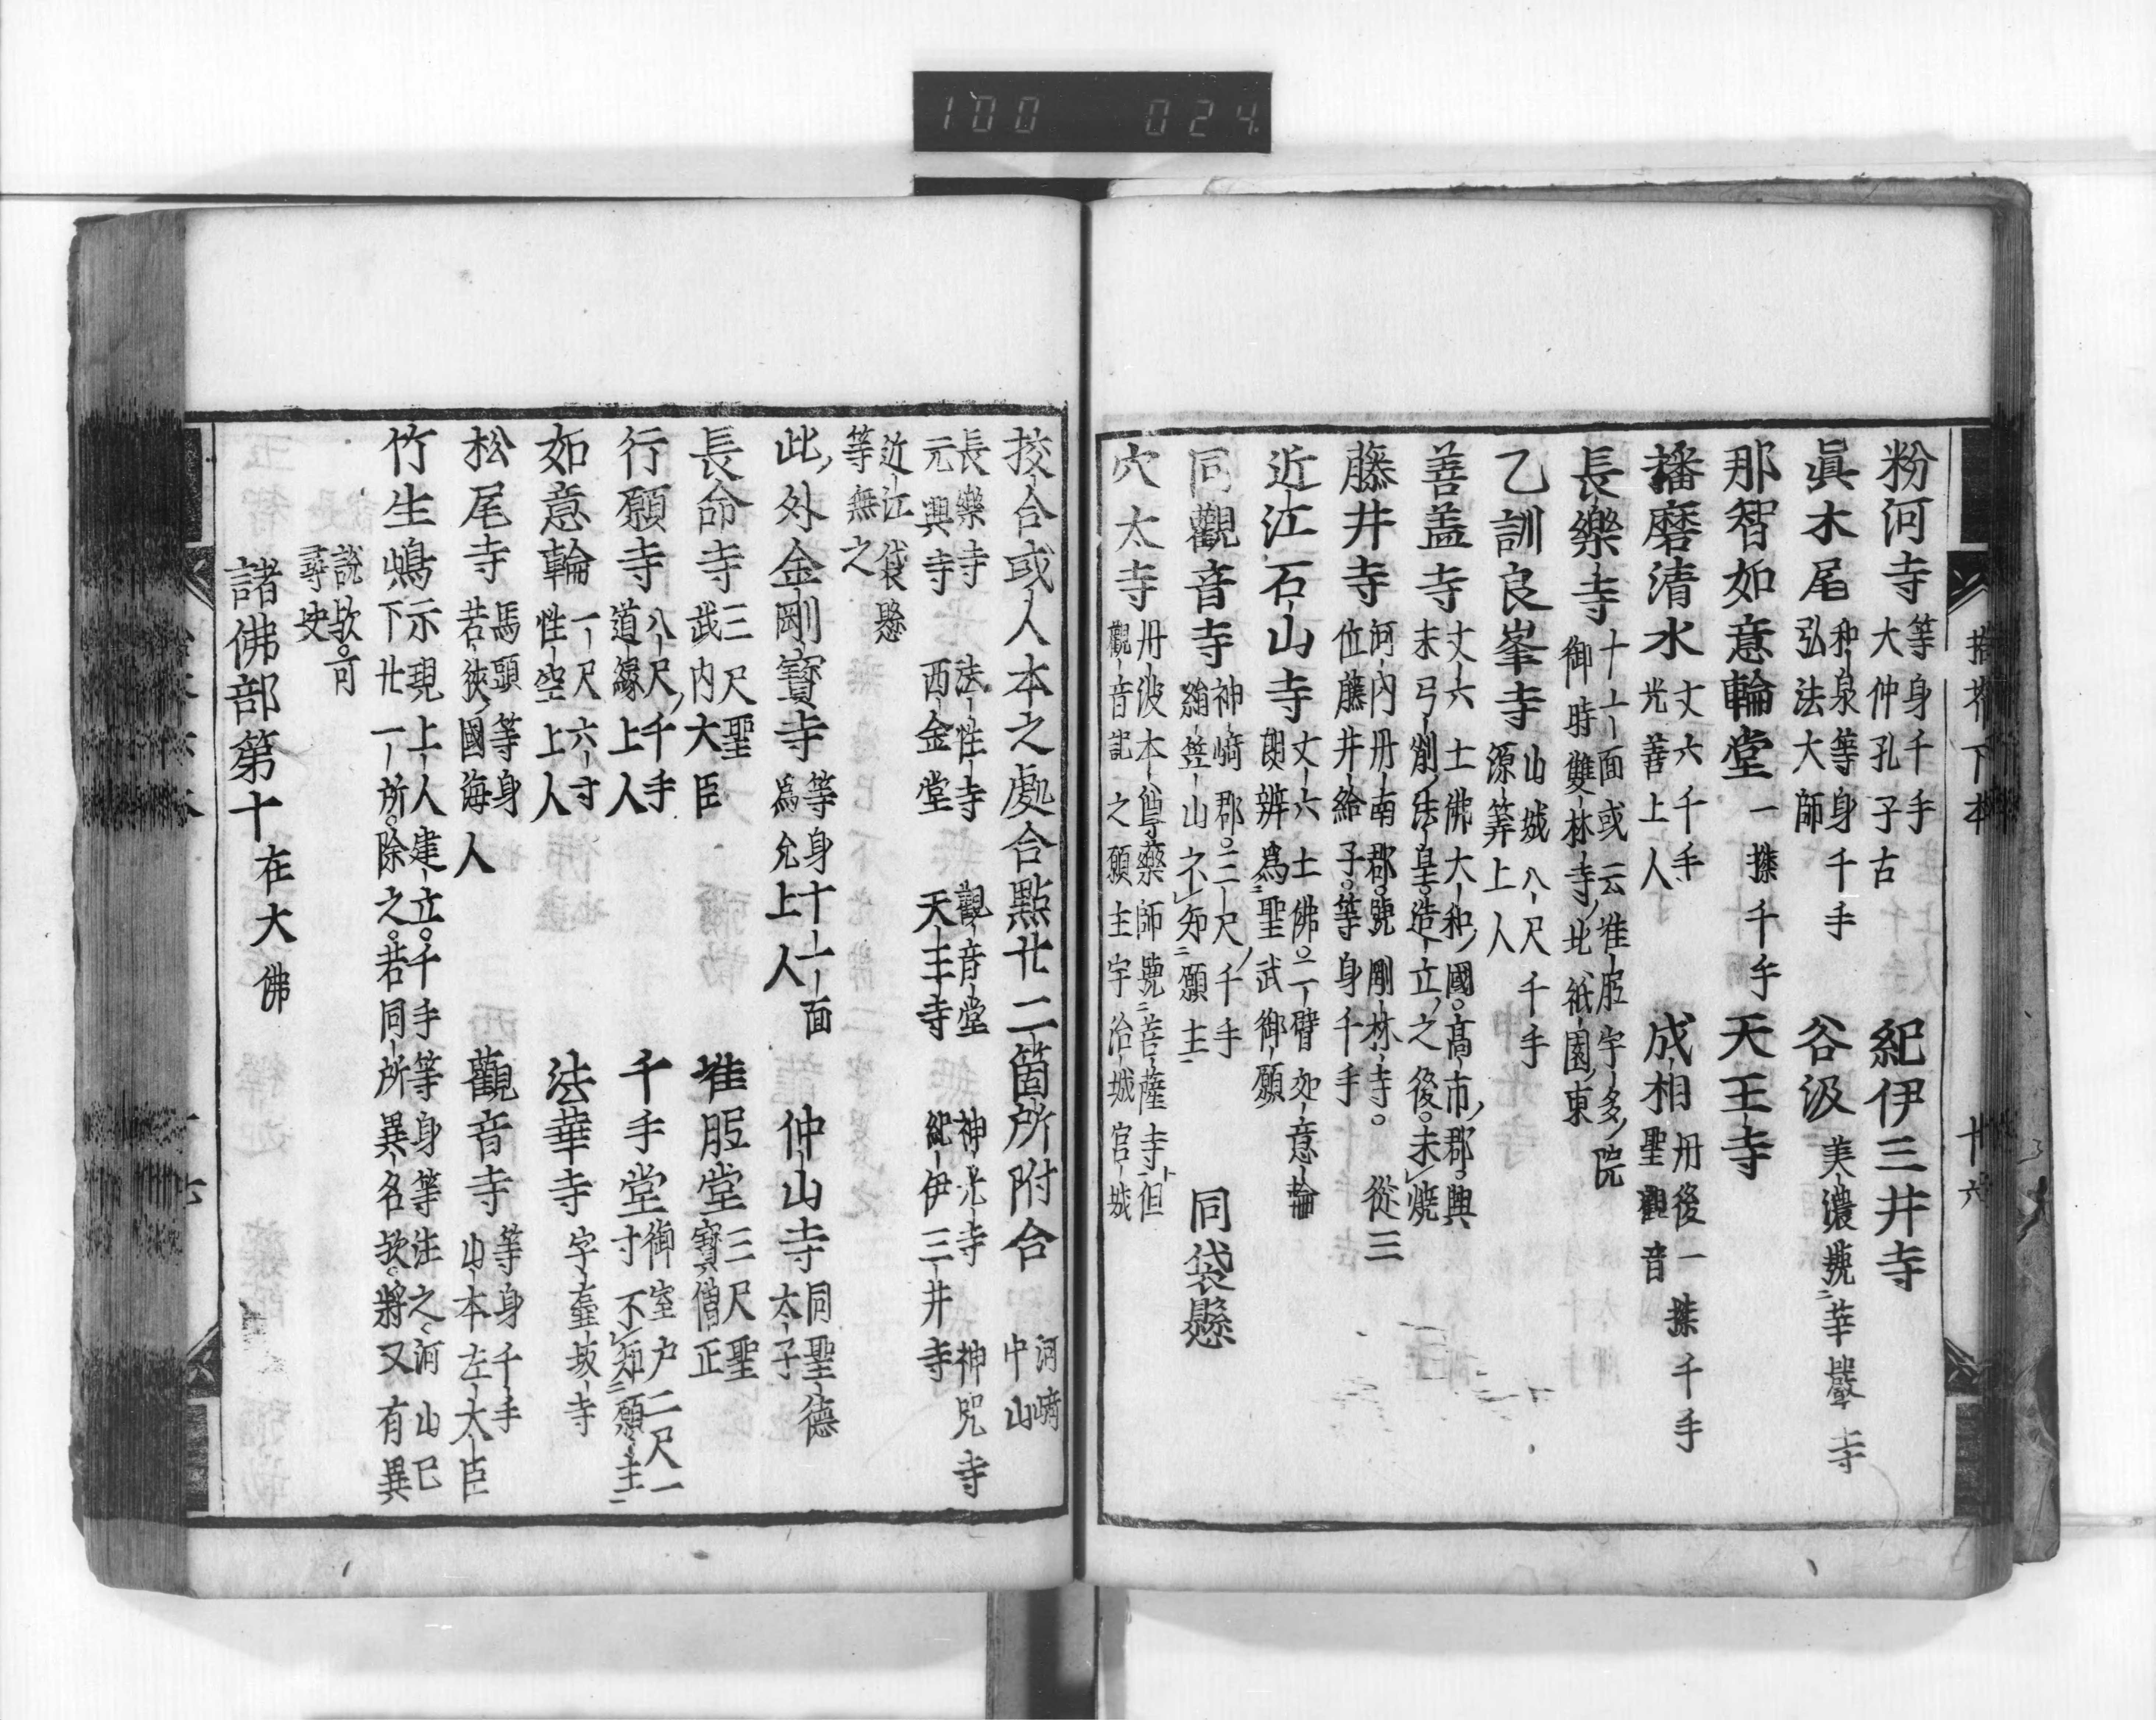 100 024
拾芥下本 十六
粉河寺 等身千手 大仲孔子古 紀伊三井寺
眞木尾 和泉等身千手 弘法大師 谷汲 美濃號華嚴寺
那智如意輪堂 一𢷡手半 天王寺
播磨清水 丈六千手 光善上人 成相 丹後一𢷡手半 聖觀音
長樂寺 十一面或云准胝宇多院 御時雙林寺北祇園東
乙訓良峯寺 山城八尺千手 源筭上人
善盖寺 丈六土佛大和國高市郡興 末弓削法皇造立之後未燒
藤井寺 河內丹南郡號剛林寺 從三 位藤井給子等身千手
近江石山寺 丈六土佛二臂如意輪 朗辨爲聖武御願
同觀音寺 神﨑郡三尺千手 繖山不知願主 同袋懸
穴太寺 丹波本尊藥師號菩薩寺但 觀音記之願主宇治城宮城
挍合或人本之處合點廿二箇所附合 河﨑 中山
長樂寺 法性寺 觀音堂 神光寺 神咒寺
元興寺 西金堂 天王寺 紀伊三井寺
近江袋懸
等無之
此外金剛寳寺 等身十一面 爲允上人 仲山寺 同聖德 太子
長命寺 三尺聖 武内大臣 准胝堂 三尺聖 寳僧正
行願寺 八尺千手 道緣上人 千手堂 御室戶二尺一 寸不知願主
如意輪 一尺六寸 性空上人 法華寺 字壷坂寺
松尾寺 馬頭等身 若狹國海人 觀音寺 等身千手 山本左大臣
竹生嶋 示現上人建立千手等身等注之河山已 下廿一所除之若同所異名欤將又有異
說欤可
尋決
諸佛部第十 在大佛